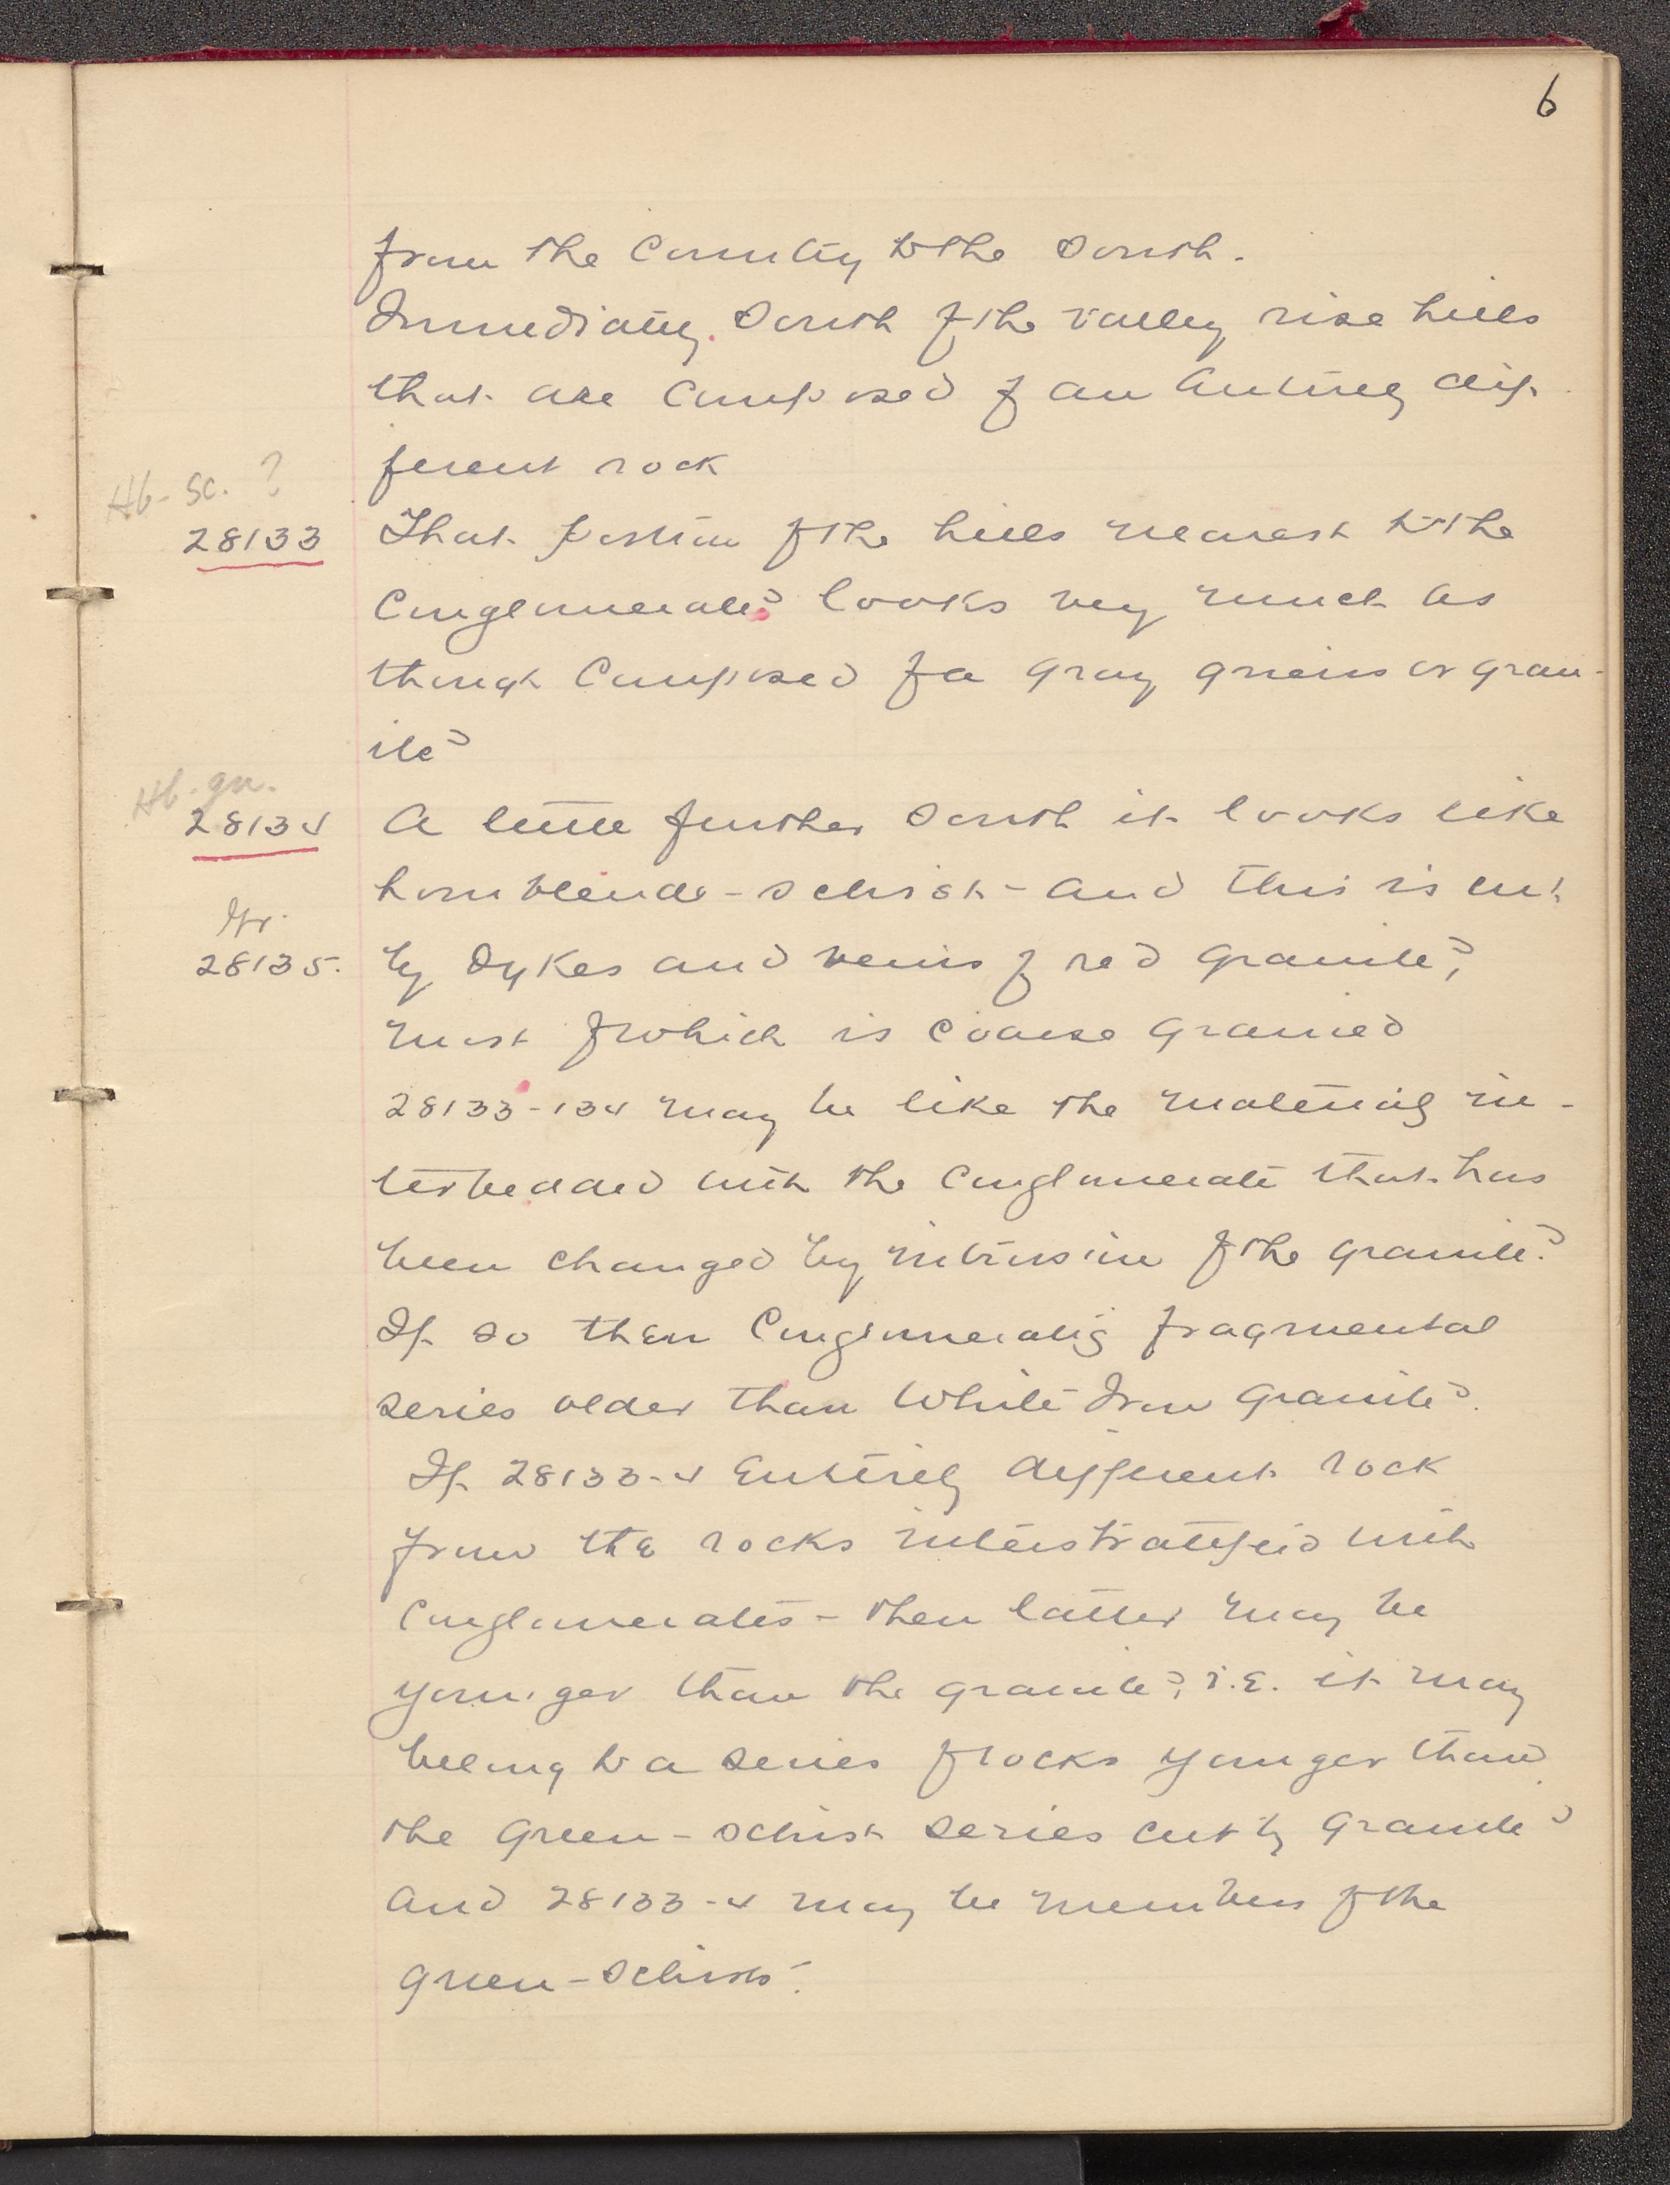 6
from the Country to the South.
Immediately South of the valley rise hills
that are Composed of an Entirely dif-
ferent rock
Hb-sc. ?
28133 That portion of the hills nearest to the
Conglomerate looks very much as
though Composed of a gray gneiss or gran-
ite
Hb-gn.
28134 A little further South it looks like
hornblende-schist - and this is cut
Gr.
28135. by dykes and veins of red granite,
most of which is coarse grained
28133-134 may be like the material in-
terbedded with the Conglomerate that has
been changed by intrusion of the granite.
If so then Conglomeratic fragmental
series older than White Iron Granite.
If 28133-4 Entirely different rock
from the rocks interstratified with
Conglomerates - then latter may be
younger than the granite, i.e. it may
belong to a series of rocks younger than
the green-schist series cut by granite
and 28133-4 may be members of the
green-schists.